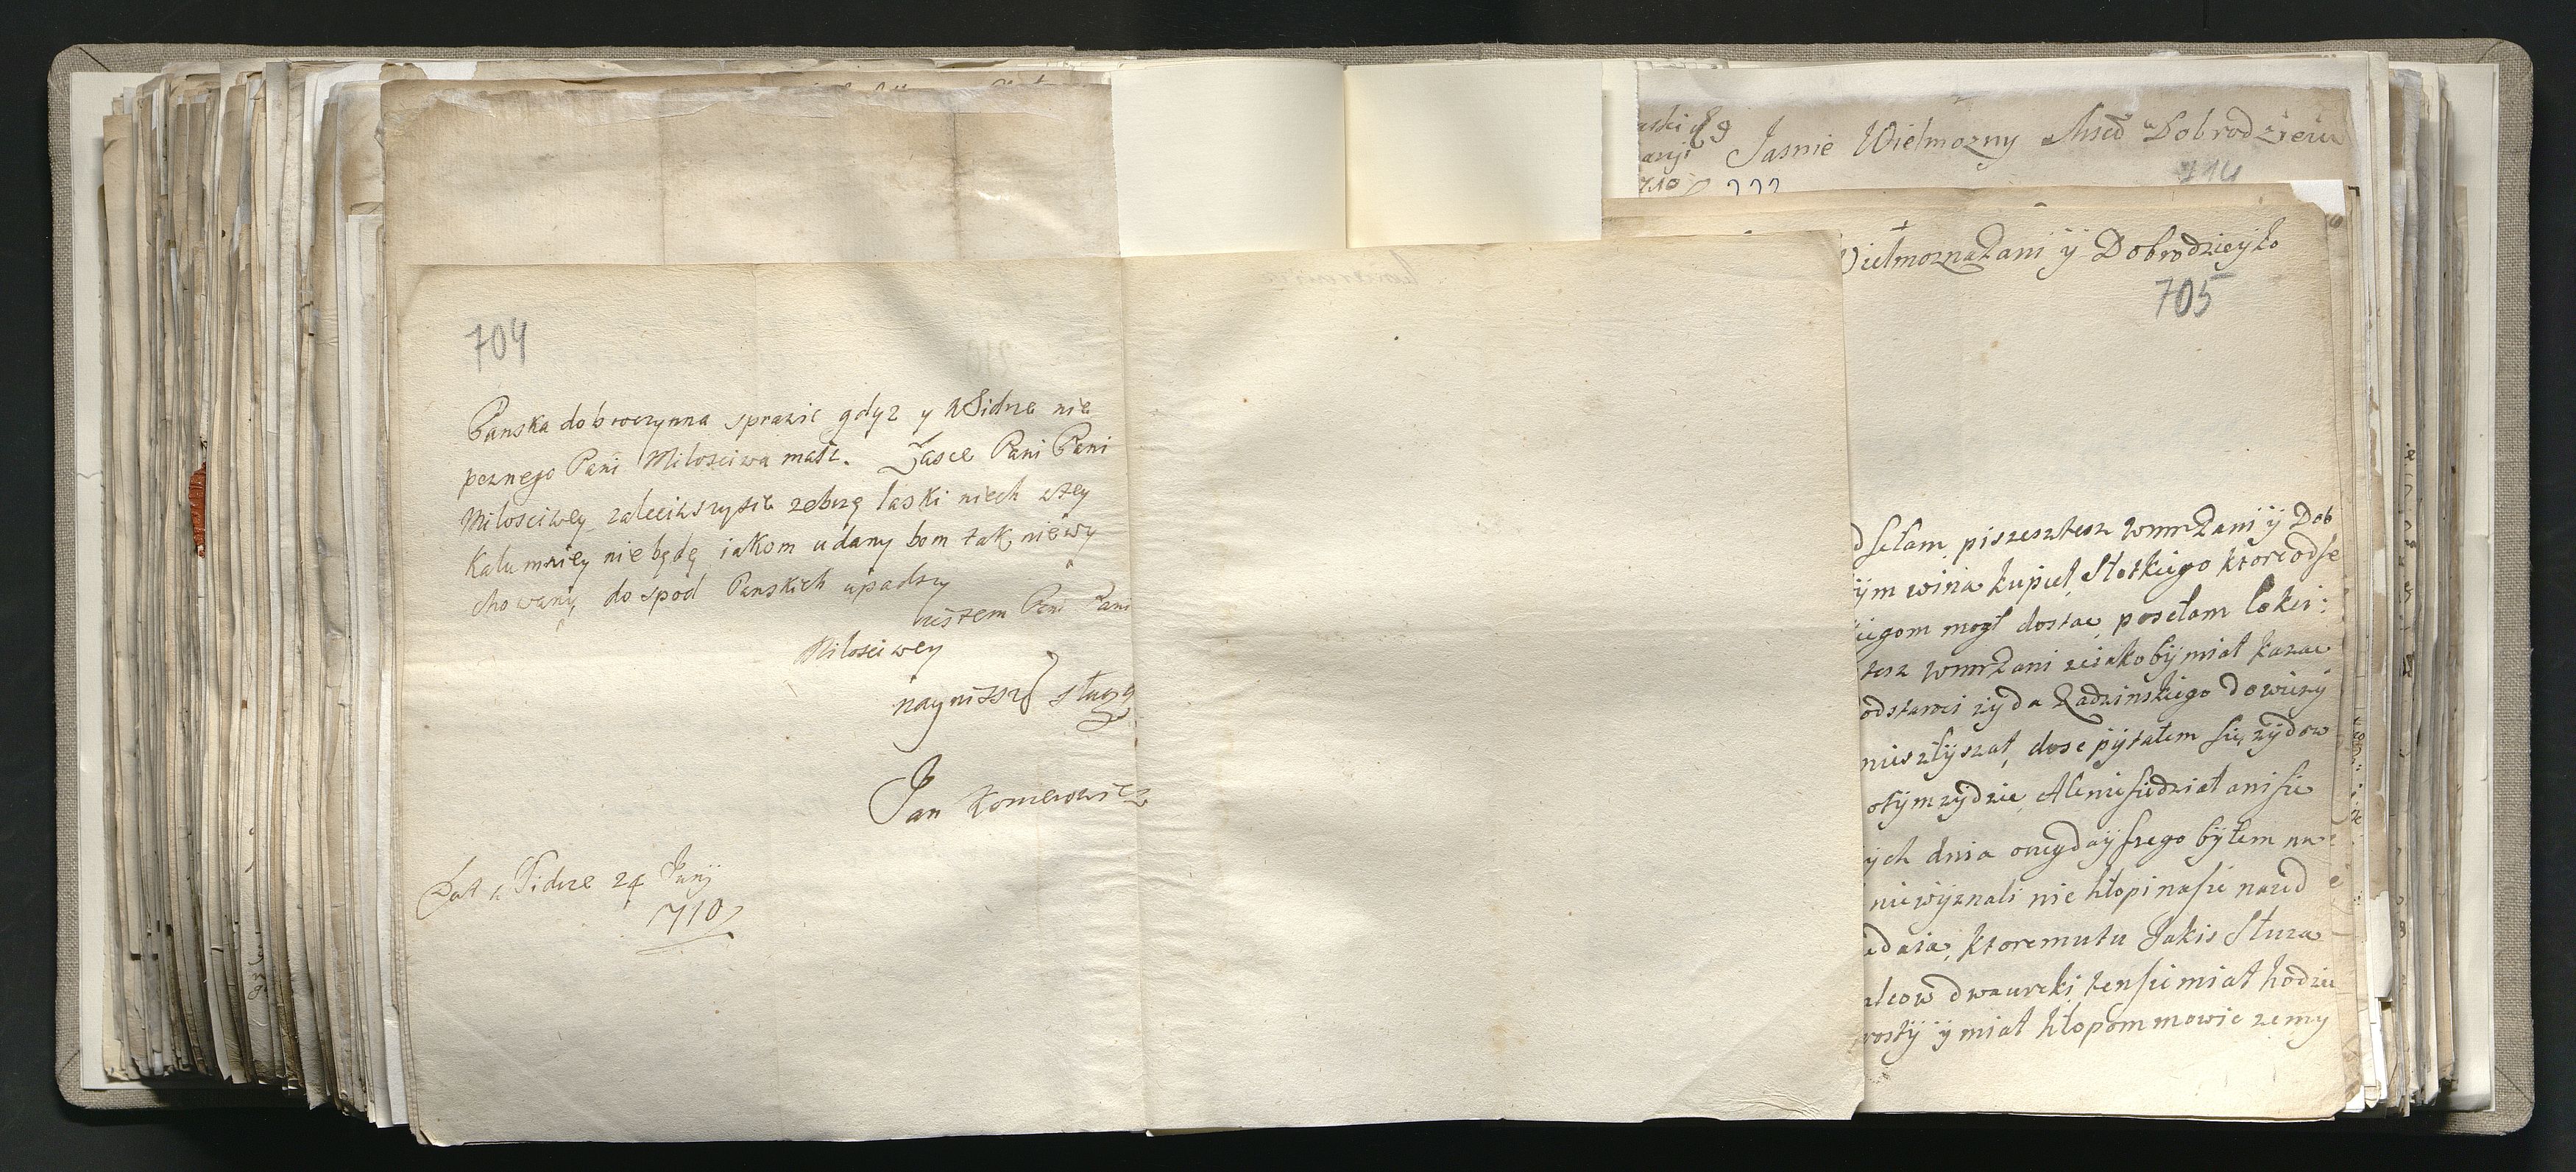 704
Panska dobroczynna sprawic gdyz y w Sidrze nie
pewnego Pani Miłosciwa masz. Łasce Pani Pani
Miłosciwey zaleciwszysie zebrzę łaski niech w tey
kalumniey nie będę iakom udany bom tak nie wy
chowany, do spod Panskich upadszy
iestem Pani Pani
Miłosciwey
nayniższy sługa
Jan
Dat w Sidrze 24 Junij
1710
Jasnie Wielmozny Dobrodzieiu
710
714
Wielmozna Pani ÿ Dobrodzieÿko
705
piszesz tesz wmm Pani ÿ Dob
ÿm wina kupieł, Słotkiego ktore odse
iegom mogł dostac, posełam łokci:
tesz wmm Pani ze iakobÿ miał kazac
odstawic zÿda Radzinskiego do wiezÿ
nie szłÿszał, dosc pÿtałem się zÿdow
otÿm zÿdzie, Ale nie siedział ani sie
ÿch dnia onegdaÿszego bÿłem na
nie wÿznali nic hłopi nasie
edaia, ktoremu tu Jakis Stuza
dwaurcki, ten sie miał hodzic
rostÿ ÿ miał hłopom mowic ze my